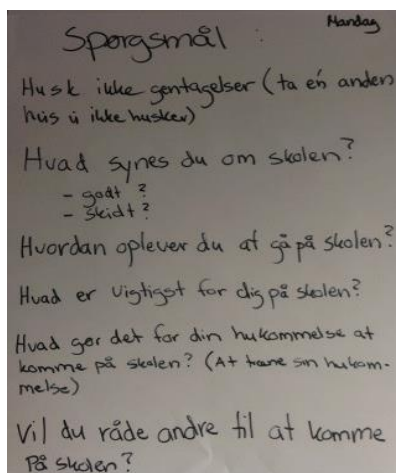 Mandag
Spørgsmål :
Husk ikke gentagelser (ta én anden
hvis ikke husker)
Hvad synes du om skolen?
- godt ?
- skidt ?
Hvordan oplever du at gå på skolen?
Hvad er vigtigst for dig på skolen?
Hvad gør det for din hukommelse at
komme på skolen? (At træne sin hukom-
melse)
Vil du råde andre til at komme
På skolen?